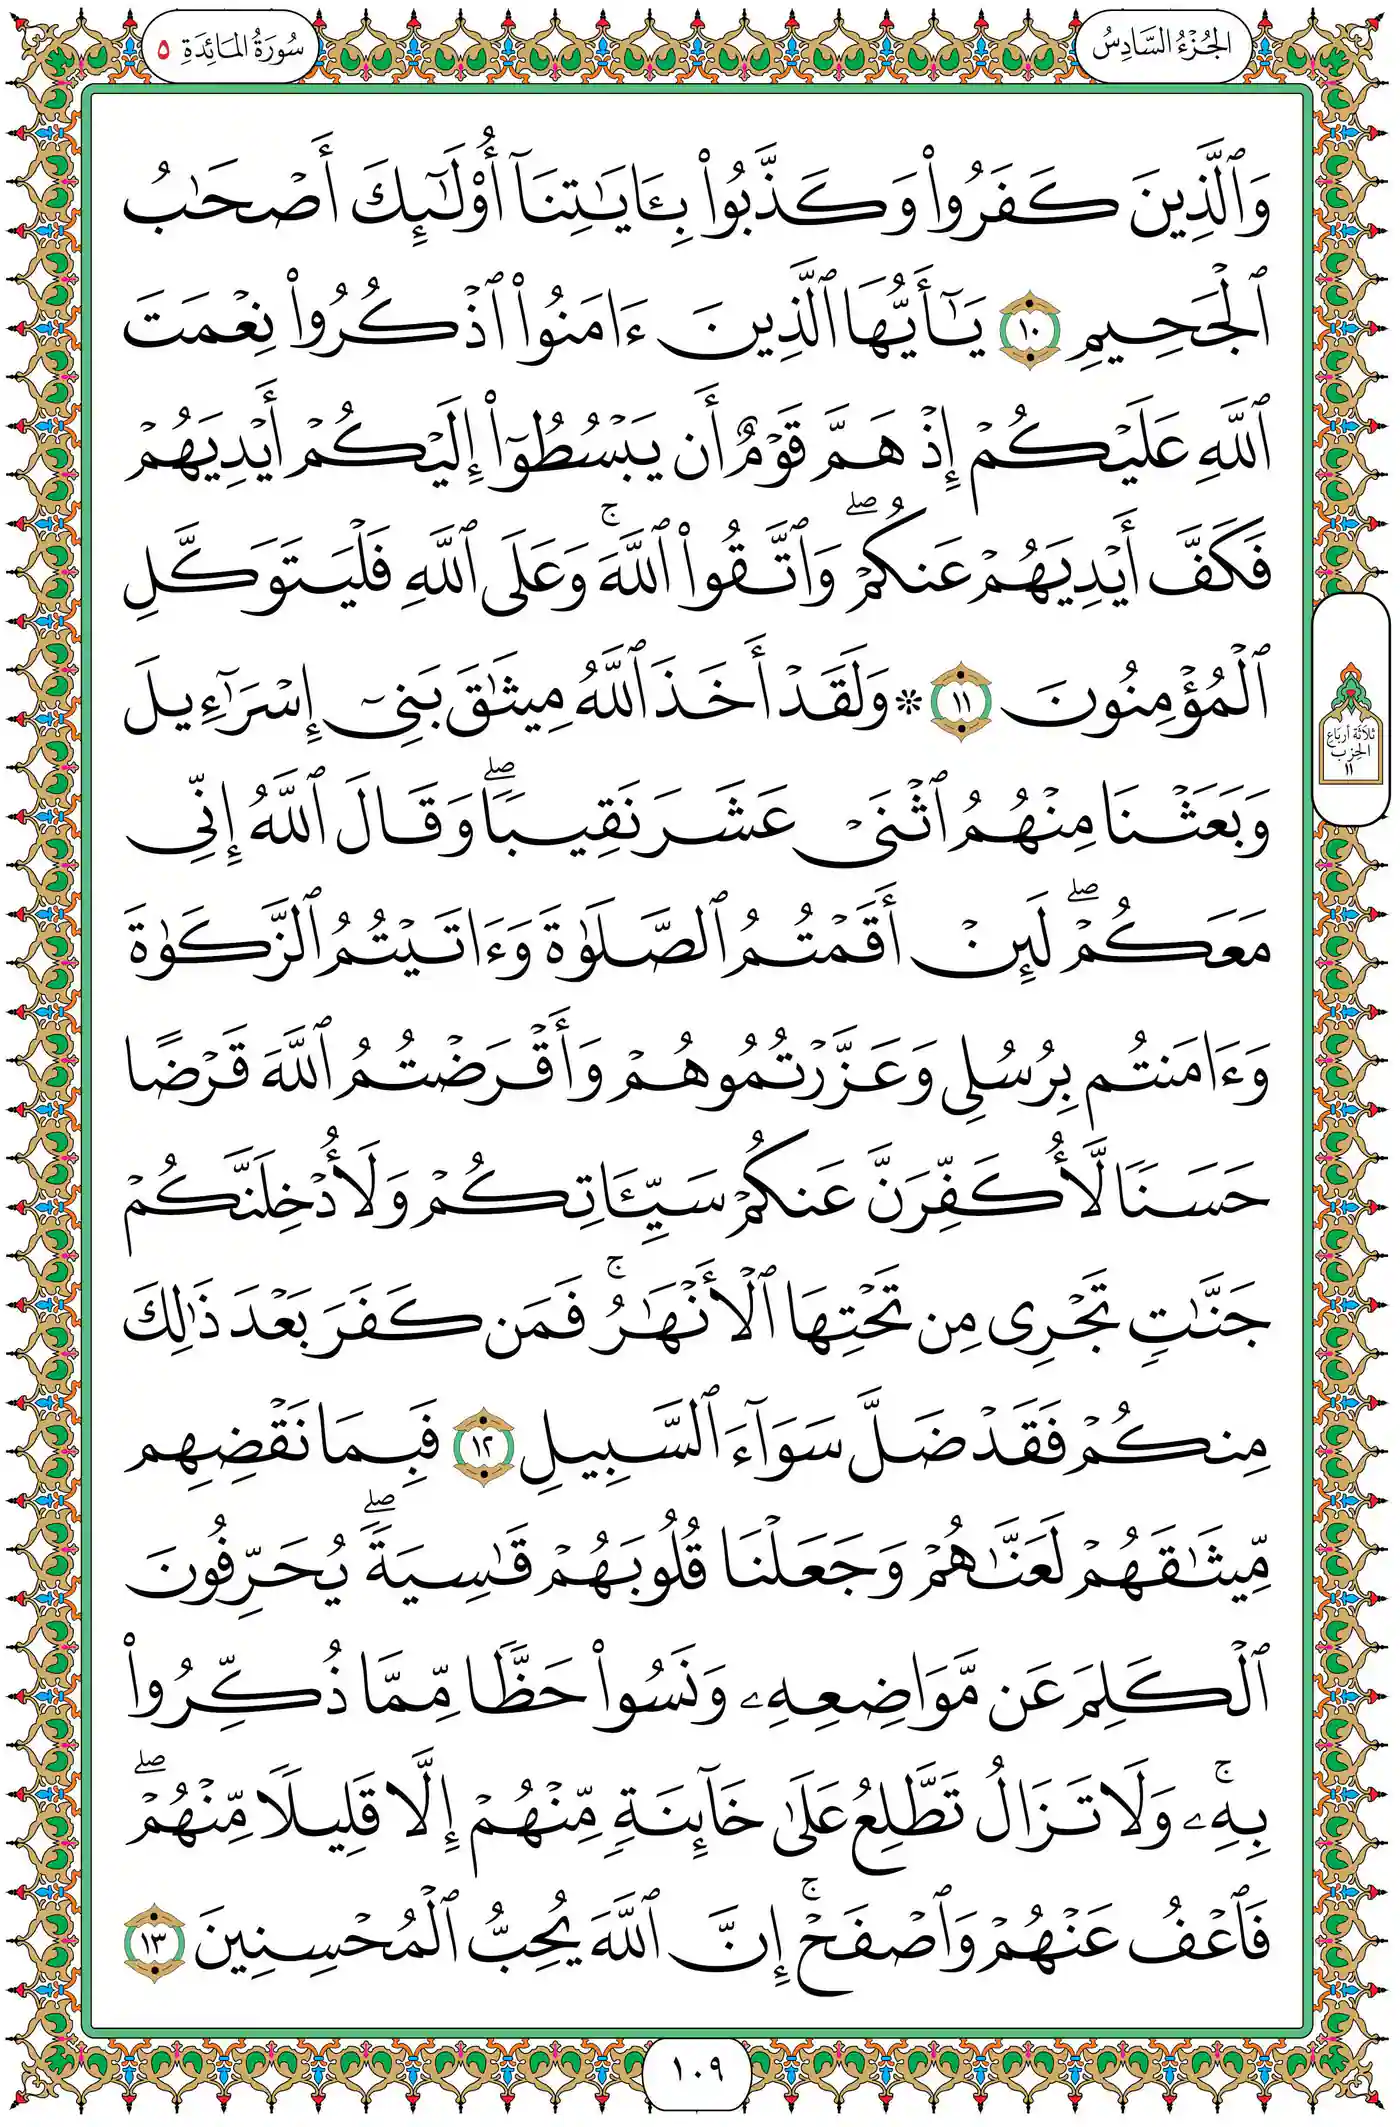 الجُزْءُ السَّادِسُ
سُورَةُ المَائِدَةِ ٥
وَٱلَّذِينَ كَفَرُوا۟ وَكَذَّبُوا۟ بِـَٔايَـٰتِنَآ أُو۟لَـٰٓئِكَ أَصْحَـٰبُ
ٱلْجَحِيمِ ١٠ يَـٰٓأَيُّهَا ٱلَّذِينَ ءَامَنُوا۟ ٱذْكُرُوا۟ نِعْمَتَ
ٱللَّهِ عَلَيْكُمْ إِذْ هَمَّ قَوْمٌ أَن يَبْسُطُوٓا۟ إِلَيْكُمْ أَيْدِيَهُمْ
فَكَفَّ أَيْدِيَهُمْ عَنكُمْ ۖ وَٱتَّقُوا۟ ٱللَّهَ ۚ وَعَلَى ٱللَّهِ فَلْيَتَوَكَّلِ
ٱلْمُؤْمِنُونَ ١١ * وَلَقَدْ أَخَذَ ٱللَّهُ مِيثَـٰقَ بَنِىٓ إِسْرَٰٓءِيلَ
وَبَعَثْنَا مِنْهُمُ ٱثْنَىْ عَشَرَ نَقِيبًا ۖ وَقَالَ ٱللَّهُ إِنِّى
مَعَكُمْ ۖ لَئِنْ أَقَمْتُمُ ٱلصَّلَوٰةَ وَءَاتَيْتُمُ ٱلزَّكَوٰةَ
وَءَامَنتُم بِرُسُلِى وَعَزَّرْتُمُوهُمْ وَأَقْرَضْتُمُ ٱللَّهَ قَرْضًا
حَسَنًا لَّأُكَفِّرَنَّ عَنكُمْ سَيِّـَٔاتِكُمْ وَلَأُدْخِلَنَّكُمْ
جَنَّـٰتٍ تَجْرِى مِن تَحْتِهَا ٱلْأَنْهَـٰرُ ۚ فَمَن كَفَرَ بَعْدَ ذَٰلِكَ
مِنكُمْ فَقَدْ ضَلَّ سَوَآءَ ٱلسَّبِيلِ ١٢ فَبِمَا نَقْضِهِم
مِّيثَـٰقَهُمْ لَعَنَّـٰهُمْ وَجَعَلْنَا قُلُوبَهُمْ قَـٰسِيَةً ۖ يُحَرِّفُونَ
ٱلْكَلِمَ عَن مَّوَاضِعِهِۦ وَنَسُوا۟ حَظًّا مِّمَّا ذُكِّرُوا۟
بِهِۦ ۚ وَلَا تَزَالُ تَطَّلِعُ عَلَىٰ خَآئِنَةٍ مِّنْهُمْ إِلَّا قَلِيلًا مِّنْهُمْ ۖ
فَٱعْفُ عَنْهُمْ وَٱصْفَحْ ۚ إِنَّ ٱللَّهَ يُحِبُّ ٱلْمُحْسِنِينَ ١٣
ثلاثة أرباع
الحزب
١١
١٠٩